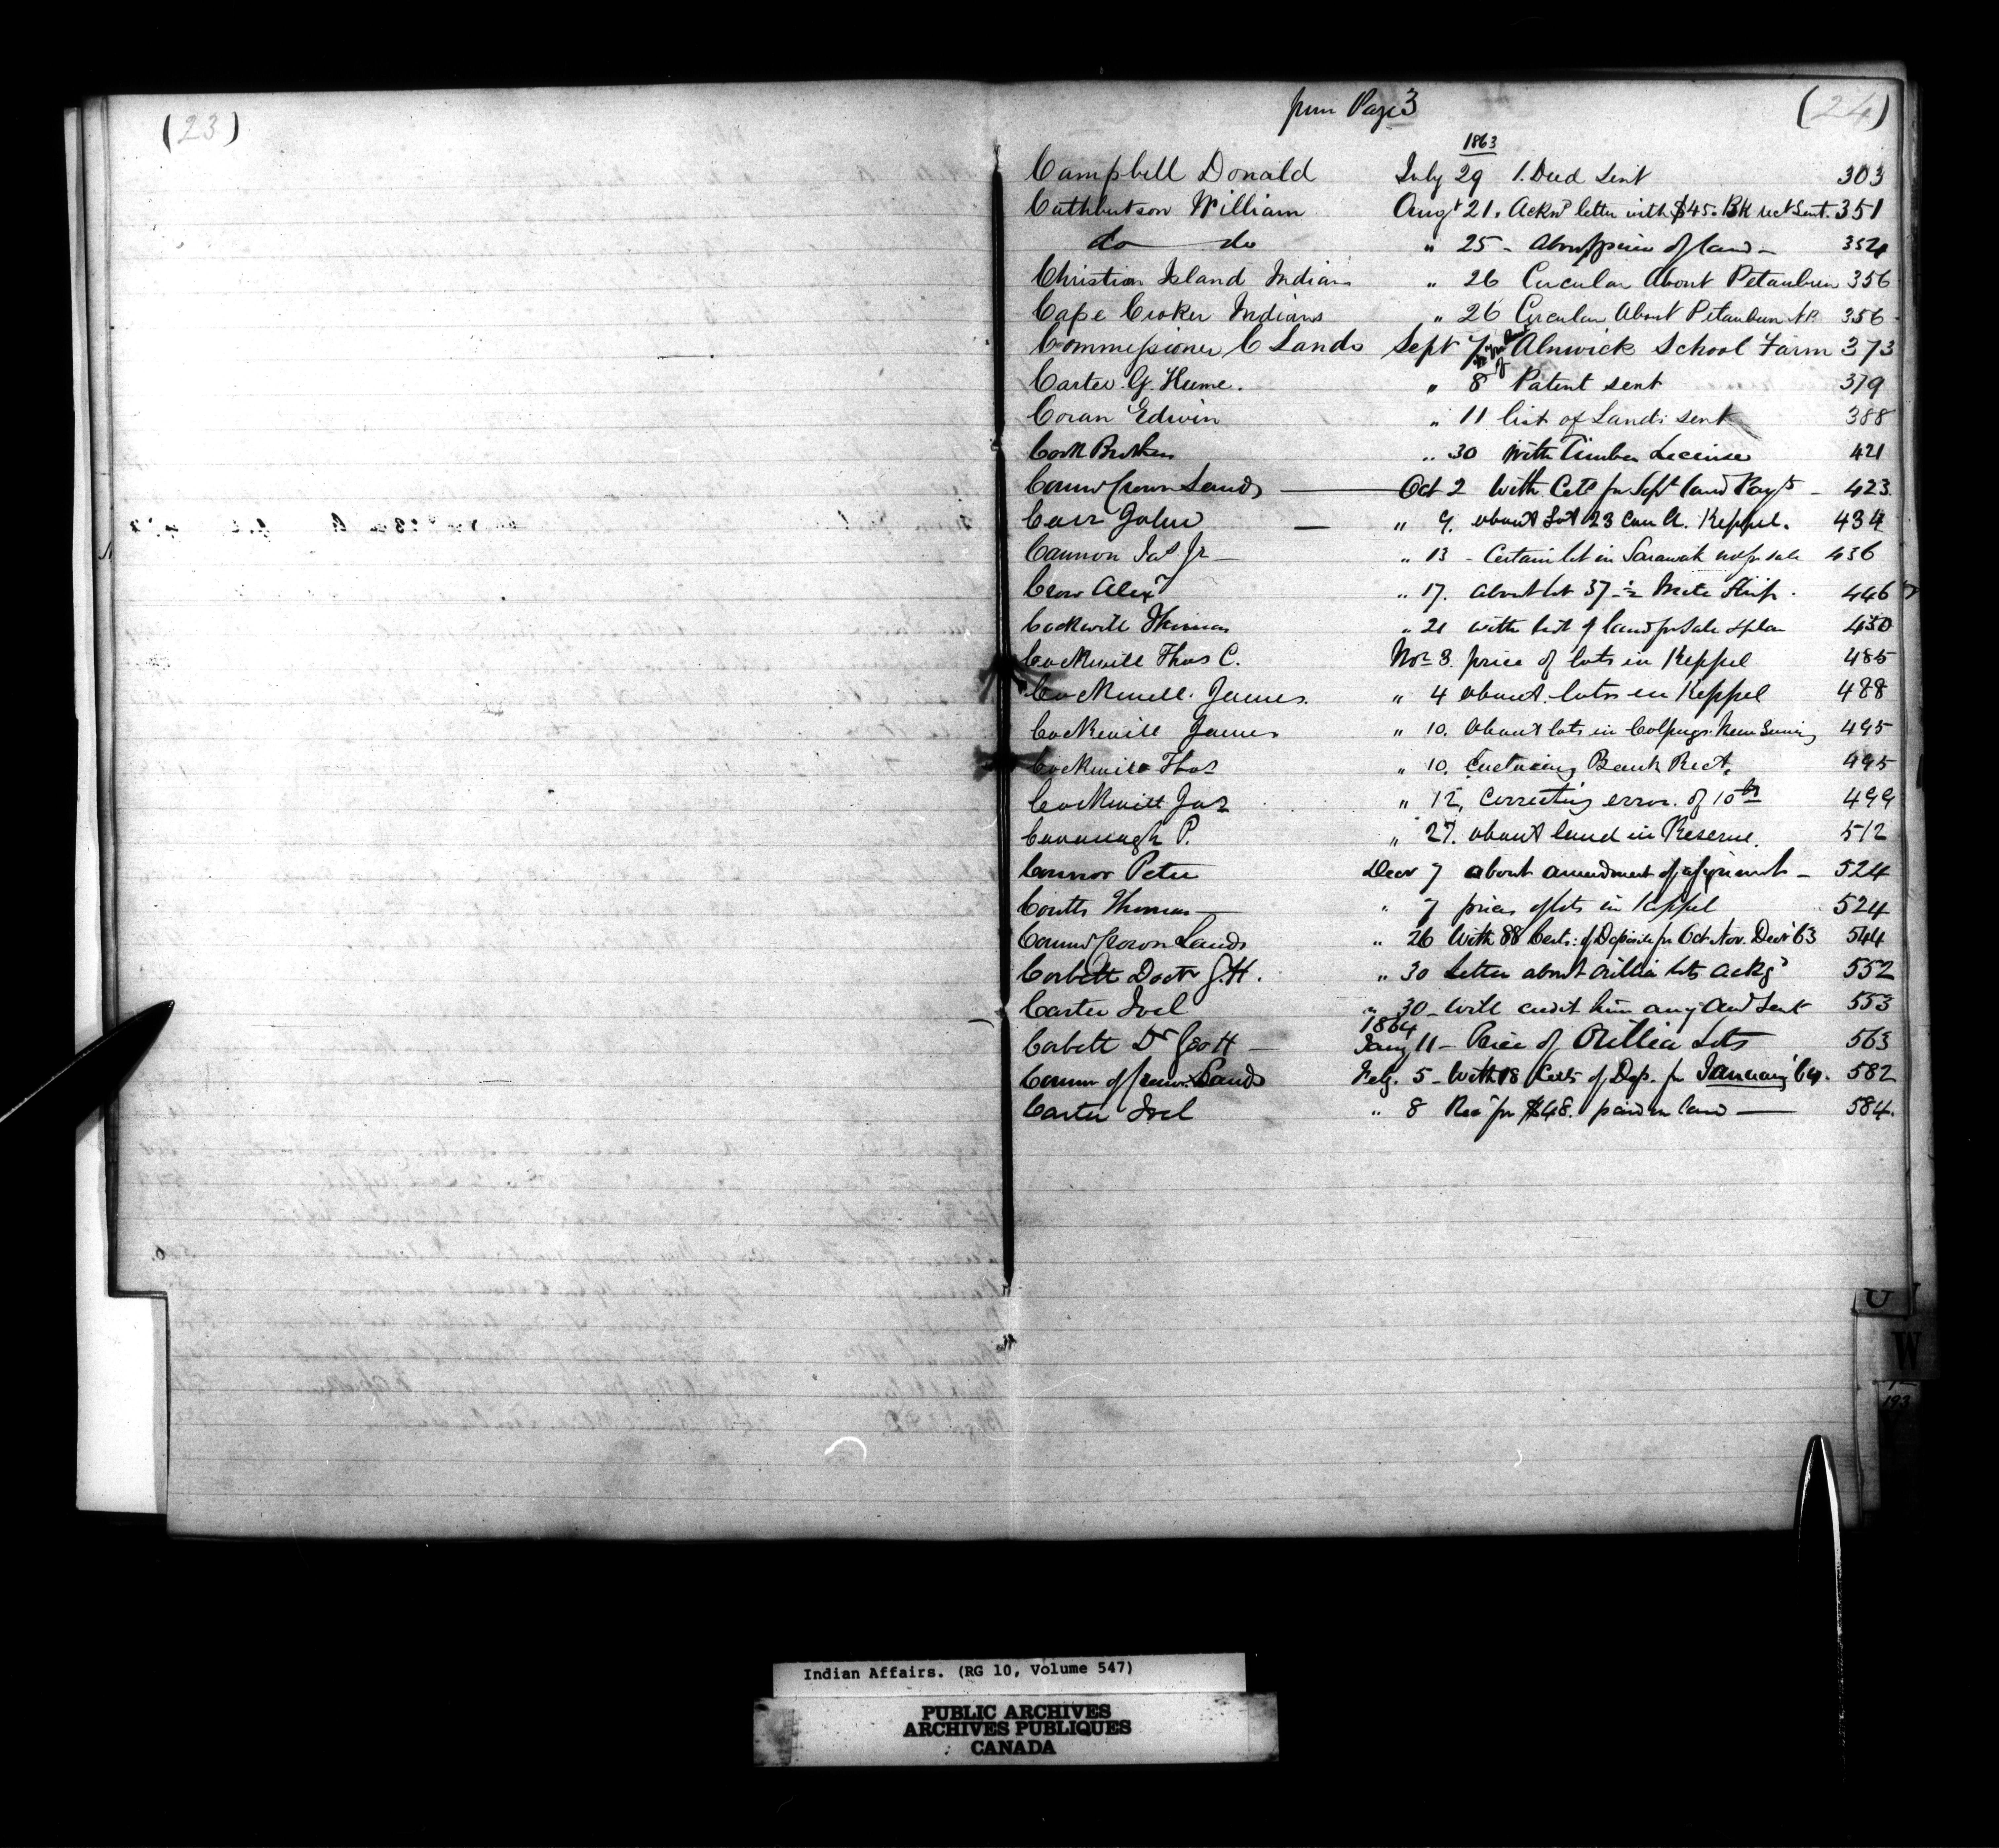 (23)
from Page 3
(24)
1863
Campbell Donald July 29 1. Deed Sent 303
Cuthbertson William Augt 21. Acknd letter with $45. Bk rect Sent. 351
do do " 25 - About price of land - 354
Christian Island Indians " 26 Circular About Petaubun 356
Cape Croker Indians " 26 Circular About Petaubun 356
Commissioner C Lands Sept 7 Alnwick School Farm 373
Carter G. Hume. " 8 Patent sent 379
Coran Edwin " 11 list of Lands sent 388
Cook Brothers " 30 With Timber License 421
Commr Crown Lands Oct 2 With Certs for Sept land Payts - 423.
Carr John " 9. about Lot 23 Con A. Keppel. 434
Cannon Jas Jr - " 13 - Certain lot in Sarawak not for sale 436
Crow Alexr " 17. about lot 37 - ½ Mile Strip. 446
Cockwill Thomas " 21 with list of land for Sale & plan 450
Cockwill Thos C. Nov 3. price of lots in Keppel 485
Cockwill. James. " 4 about lots in Keppel 488
Cockwill James " 10. About lots in Colpoys 495
Cockwill Thos " 10. Enclosing Bank Rect. 495
Cockwill Jas " 12, Correcting error of 10th 499
Cavanagh P. " 27. about land in Reserve. 512
Connor Peter Decr 7 about amendment of assignment - 524
Coutts Thomas - " 7 prices of lots in Keppel 524
Commr Crown Lands " 26 With 88 Certs: of Deposite for Oct. Nov. Decr 63 544
Corbett Doctr G.H. " 30 Letter about Orillia lots ackgd 552
Carter Joel " 30 - Will credit him any Sent 553
1864
Corbett Dr Geo H - Jany 11 - Price of Orillia Lots 563
Commr of Crown Lands Feby. 5 - With 18 Certs of Dep. for January 64. 582
Carter Joel " 8 Rect for $48. paid on land 584.
U
W
193
Indian Affairs. (RG 10, Volume 547)
PUBLIC ARCHIVES
ARCHIVES PUBLIQUES
CANADA